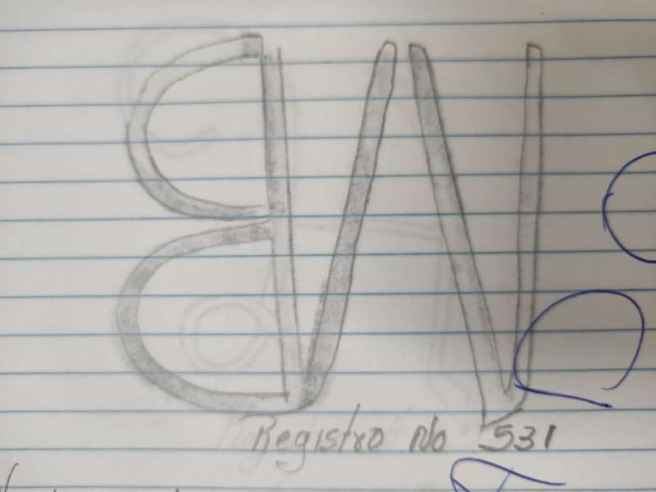 Registro No 531